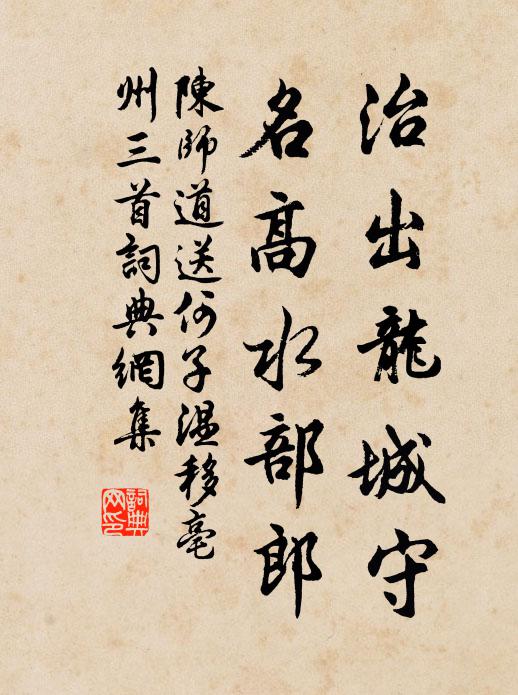 治出龍城守
名高水部郎
陳師道送何子温移亳
州三首詞典網集
詞典
网印